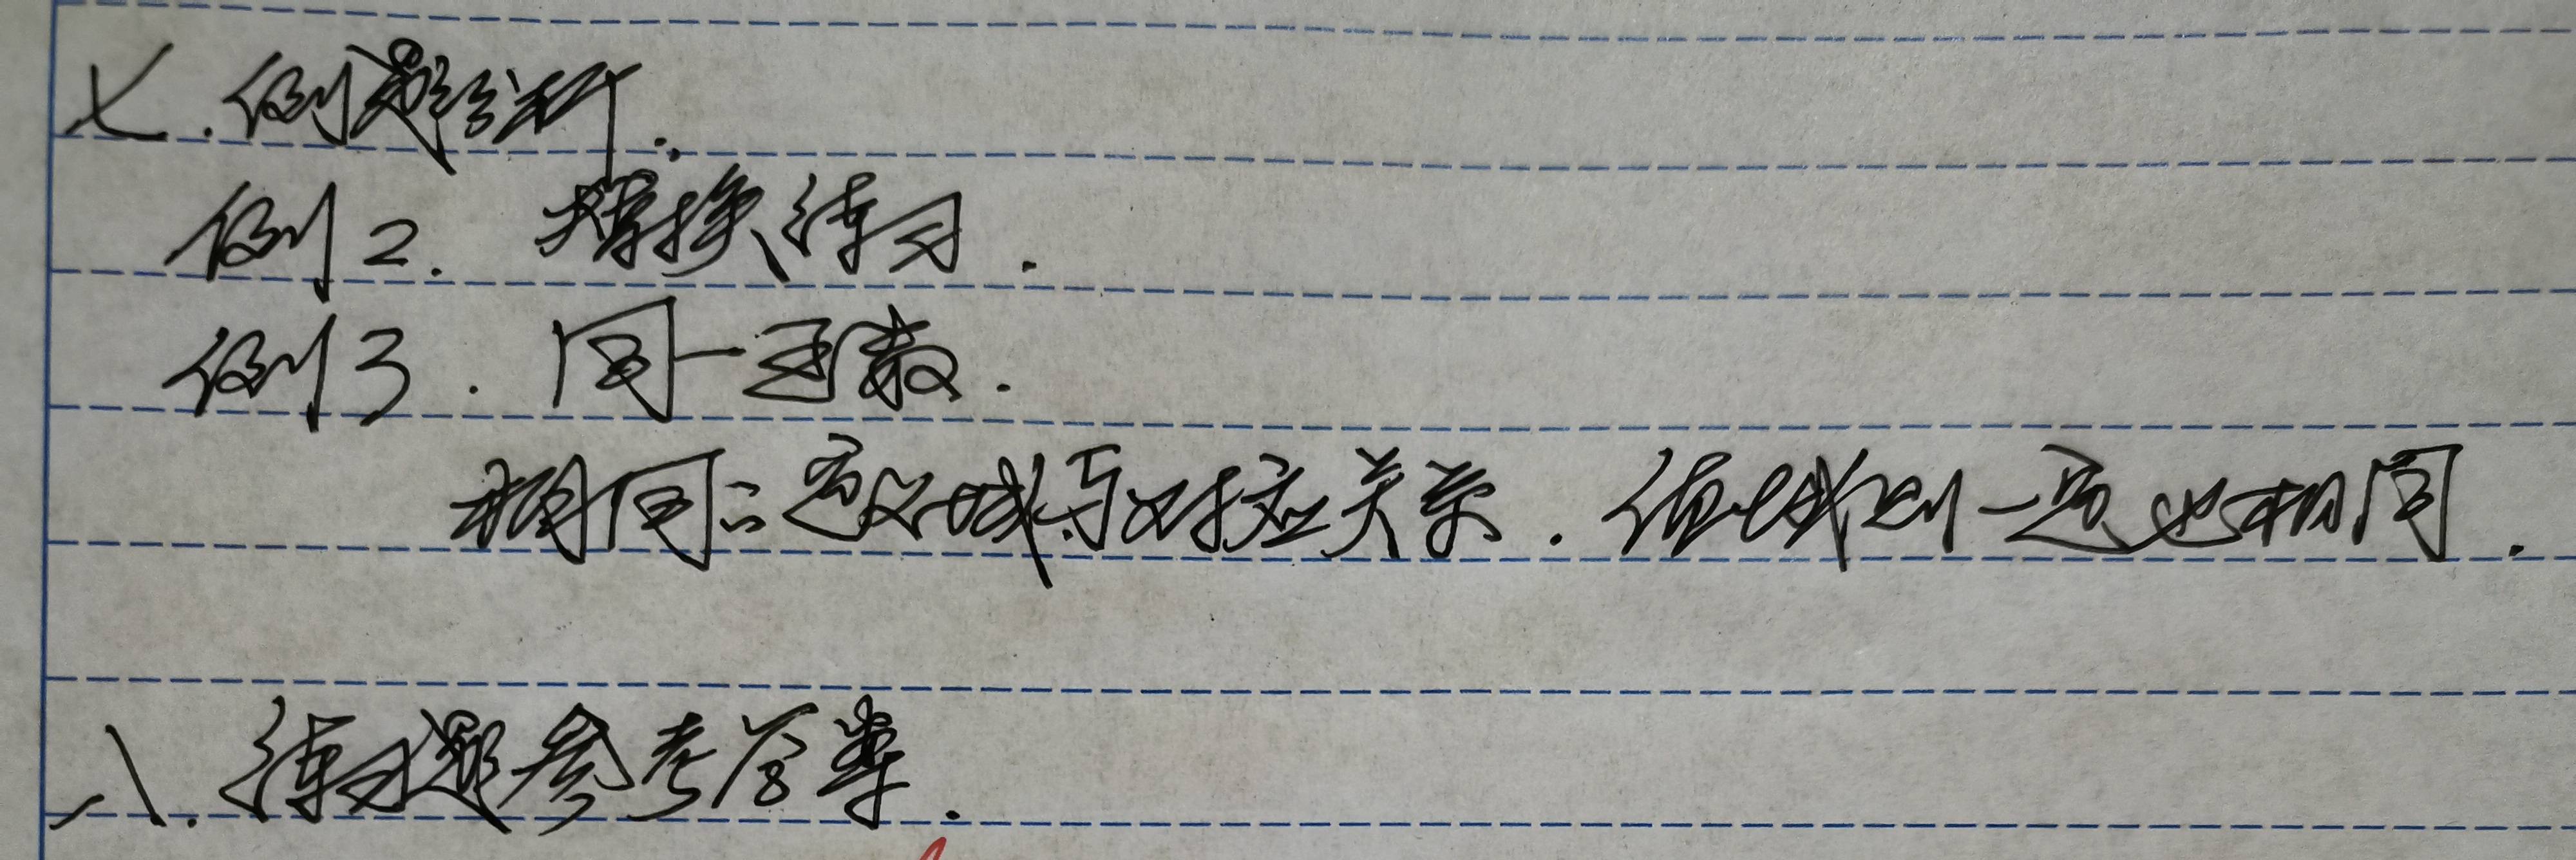 七.例题经析.
例2. 替换练习.
例3. 同一函数.
相同:定义域与对应关系.值域则一定也相同.
八.练习题参考答案.